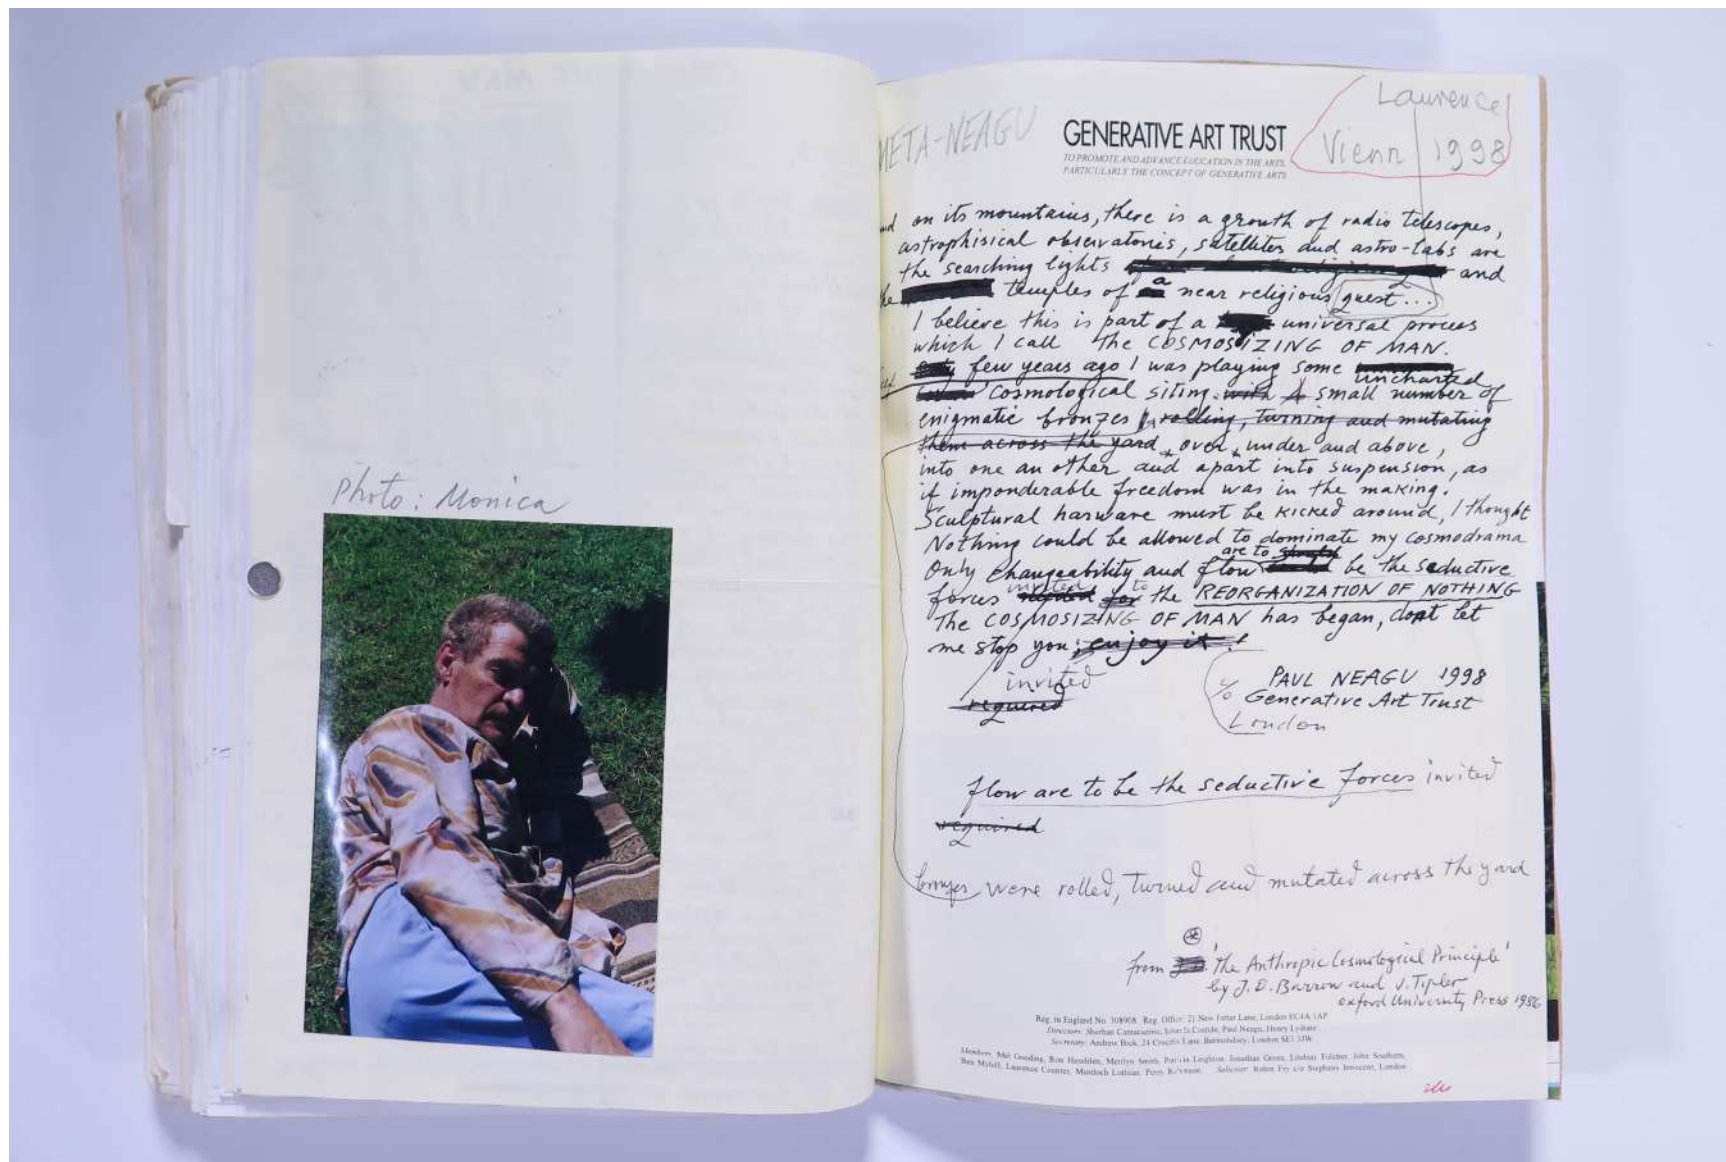 Photo: Monica
META-NEAGU
GENERATIVE ART TRUST
TO PROMOTE AND ADVANCE EDUCATION IN THE ARTS,
PARTICULARLY THE CONCEPT OF GENERATIVE ARTS
Laurence
Vienn 1998
and on its mountains, there is a growth of radio telescopes,
astrophisical observatories, satellites and astro-labs are
the searching lights and
the temples of a near religious quest...
I believe this is part of a universal process
which I call the COSMOSIZING OF MAN.
few years ago I was playing some uncharted
cosmological siting with A small number of
enigmatic bronzes rolling, turning and mutating
them across the yard over, under and above,
into one an other and apart into suspension, as
if imponderable freedom was in the making.
Sculptural harware must be kicked around, I thought
Nothing could be allowed to dominate my cosmodrama
Only changeability and flow are to be the seductive
forces invited to the REORGANIZATION OF NOTHING
The COSMOSIZING OF MAN has began, dont let
me stop you, enjoy it!
invited
required
c/o PAUL NEAGU 1998
Generative Art Trust
London
flow are to be the seductive forces invited
required
bronzes were rolled, turned and mutated across the yard
from 'The Anthropic Cosmological Principle'
by J.D. Barrow and J. Tipler
oxford University Press 1986
Reg. in England No. 308908 Reg. Office: 21 New Fetter Lane, London EC4A 1AP
Directors: Paul Neagu, Henry Lydiate
Secretary: Andrew Bick, 24 Crucifix Lane, Bermondsey, London SE1 3JW
Members: Mel Gooding, Ron Haselden, Merilyn Smith, Leighton, Jonathan Green, Lindsay Fulcher, John Southern,
Laurence Counter, Murdoch Lothian, Perry Robinson. Solicitor: Robin Fry c/o Stephens Innocent, London